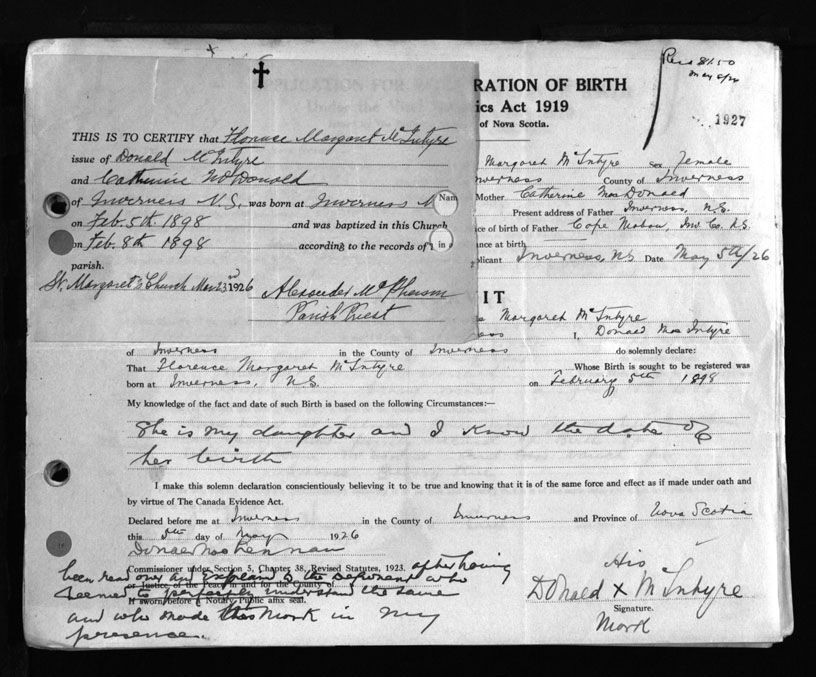 Rec'd $1.50
May 6/26
RATION OF BIRTH
ics Act 1919
of Nova Scotia.
1927
THIS IS TO CERTIFY that Florence Margaret McIntyre
issue of Donald McIntyre
and Catherine McDonald
of Inverness N.S. was born at Inverness
on Feb. 5th 1898 and was baptized in this Church
on Feb. 8th 1898 according to the records of
parish.
St. Margaret's Church Mar. 23 1926 Alexander McPherson
Parish Priest
Margaret McIntyre Sex Female
Inverness County of Inverness
Mother Catherine MacDonald
Nam
Present address of Father Inverness, N.S.
ce of birth of Father Cape Mabou, Inv. Co. N.S.
in a
nce at birth
plicant Inverness, N.S. Date May 5th/26
IT
Margaret McIntyre
ess I, Donald MacIntyre
of Inverness in the County of Inverness do solemnly declare:
That Florence Margaret McIntyre Whose Birth is sought to be registered was
born at Inverness, N.S. on February 5th 1898
My knowledge of the fact and date of such Birth is based on the following Circumstances:—
She is my daughter and I know the date of
her birth
I make this solemn declaration conscientiously believing it to be true and knowing that it is of the same force and effect as if made under oath and
by virtue of The Canada Evidence Act.
Declared before me at Inverness in the County of Inverness and Province of Nova Scotia
this 5th day of May 1926
Donald MacLennan
Commissioner under Section 5, Chapter 38, Revised Statutes, 1923. after having
been read over and explained to the deponent who
or Justice of the Peace in and for the County of
seemed to perfectly understand the same
If sworn before a Notary Public affix seal.
and who made his Mark in my
presence.
His
Donald x McIntyre
Signature.
Mark